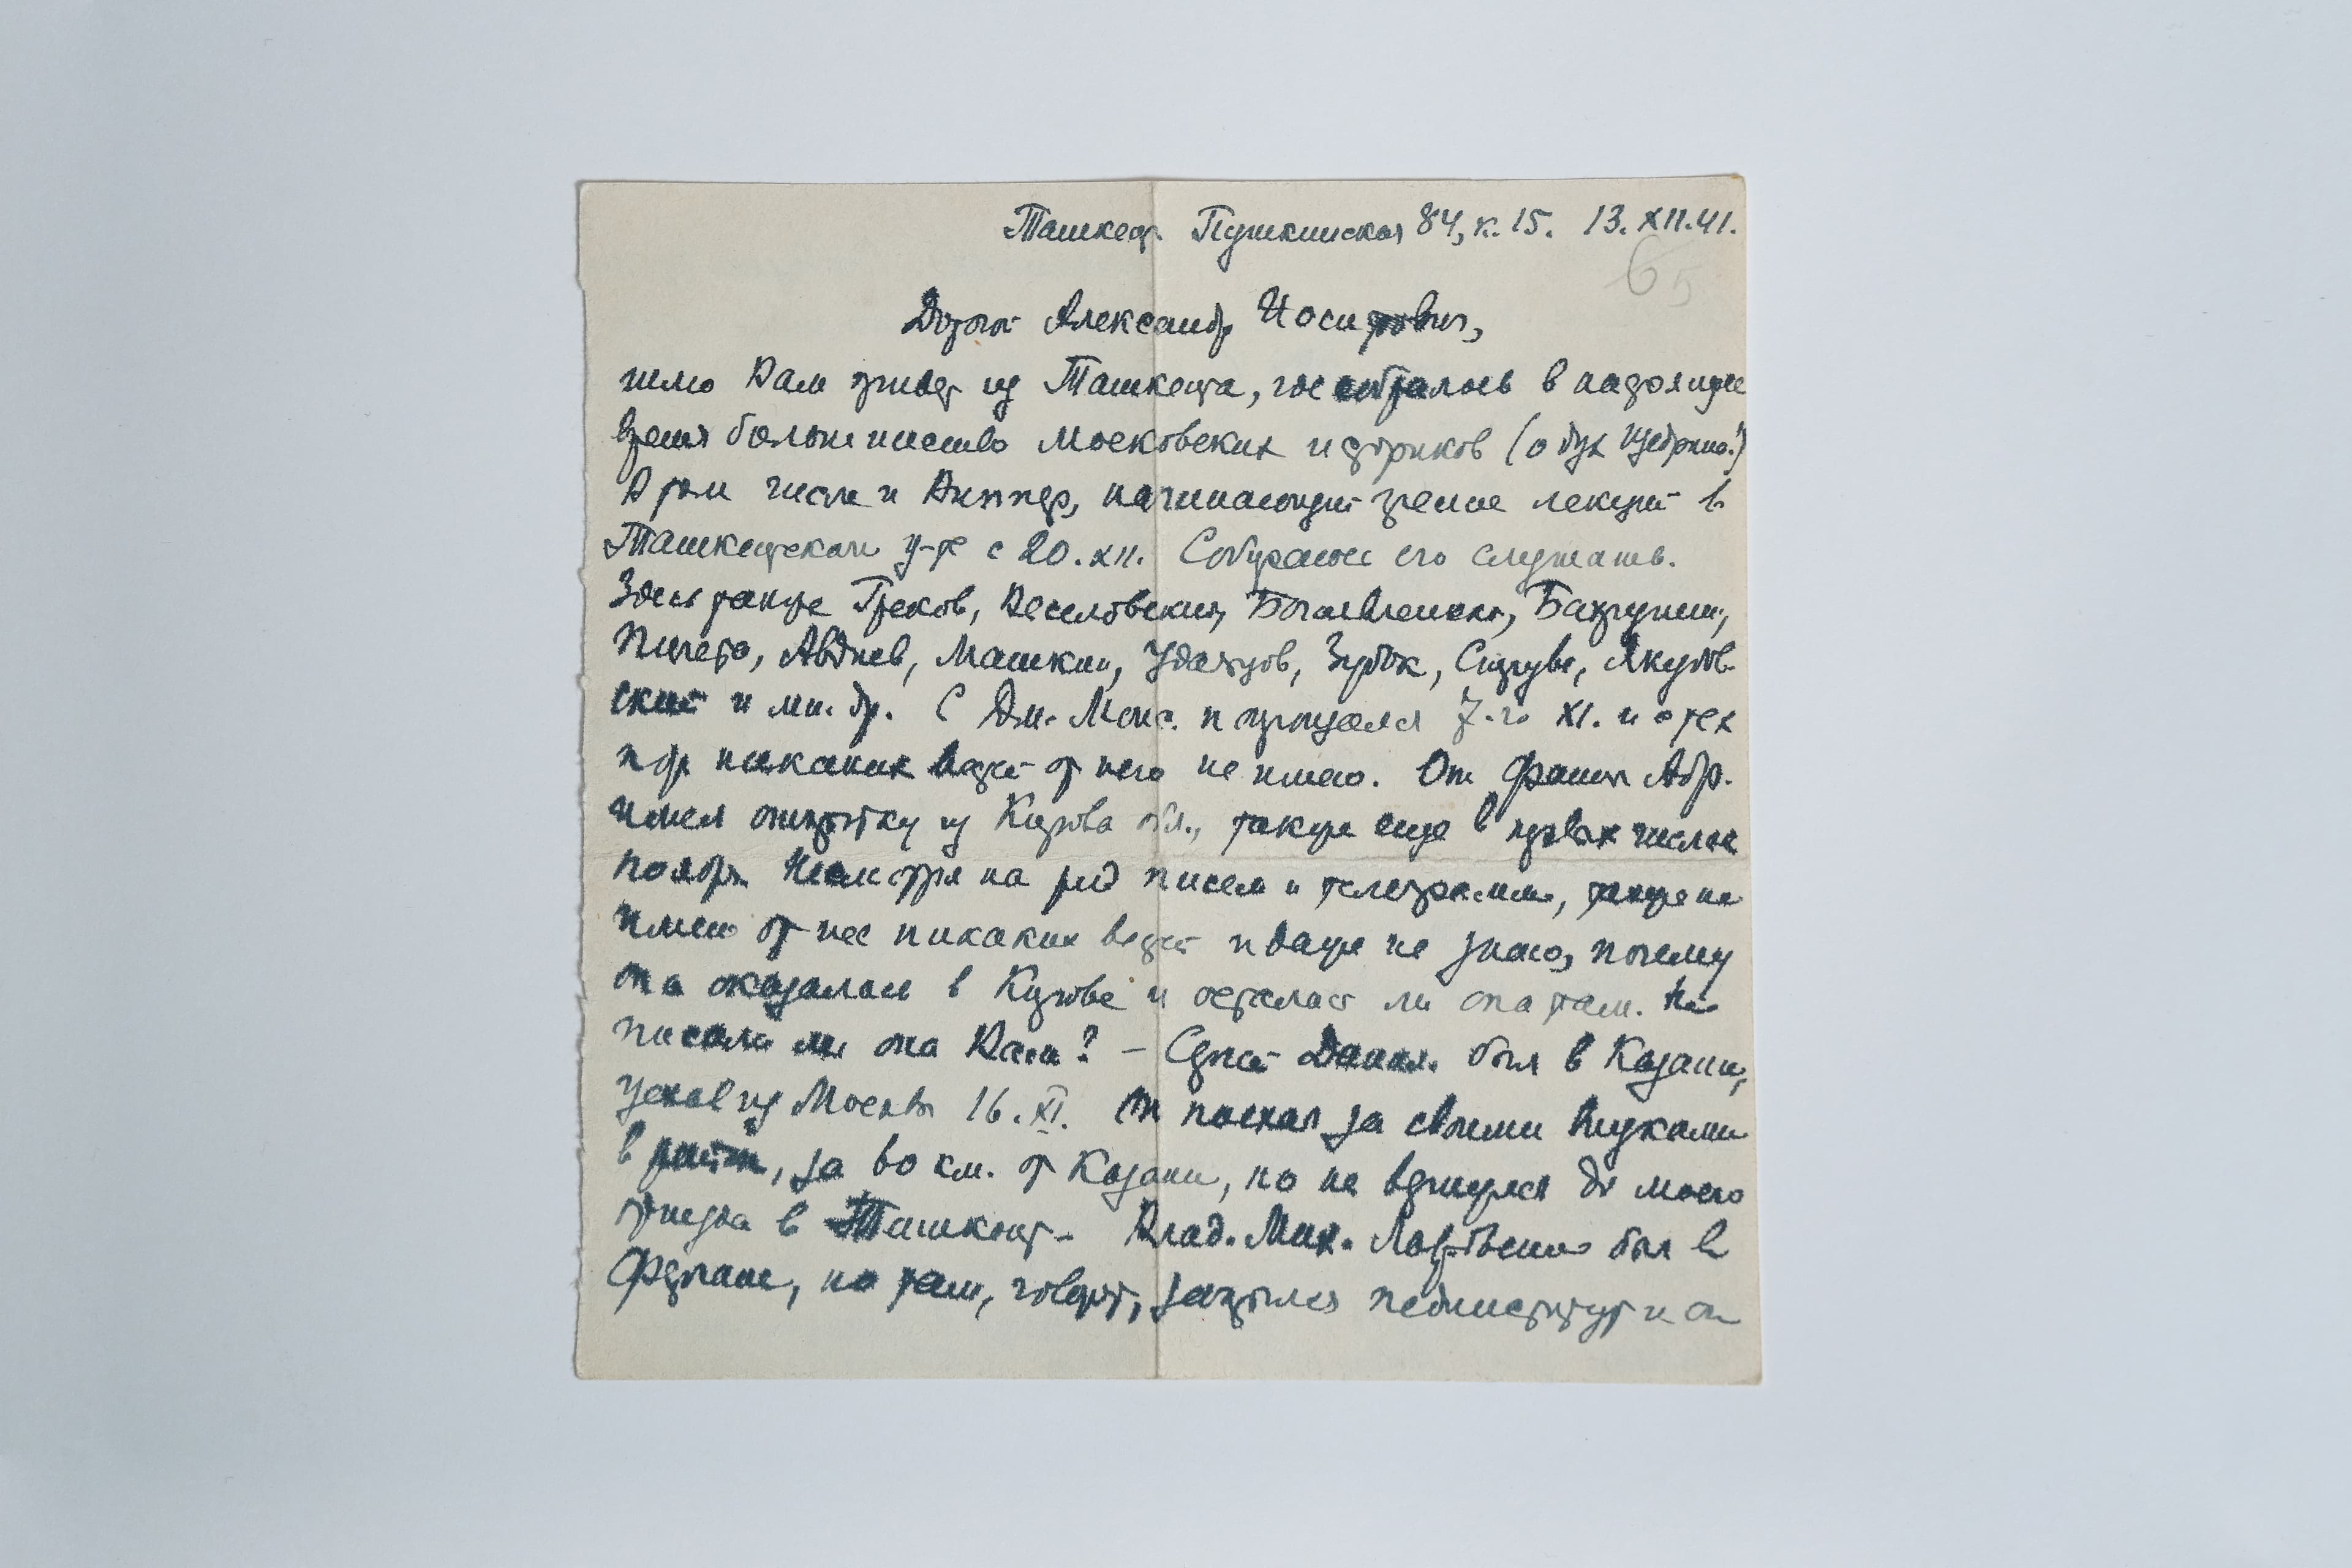 Ташкент. Пушкинская 84, к. 15. 13. XII. 41.
65
Дорогой Александр Иосифович,
шлю Вам привет из Ташкента, где собралось в настоящее
время большинство московских историков (о дух Цезарино!)
В том числе и Виппер, начинающий чтение лекций в
Ташкентском у-те с 20. XII. Собираюсь его слушать.
Здесь также Греков, Веселовский, Богоявленский, Бахрушин,
Пичета, Авдиев, Машкин, Удальцов, Зубок, Струве, Якубов-
ский и мн. др. С Дм. Моис. я простился 7-го XI. и с тех
пор никаких вестей от него не имею. От Фанни Абр.
имел открытку из Кирова обл., также еще в первых числах
ноября. Несмотря на ряд писем и телеграмм, также не
имею от нее никаких вестей и даже не знаю, почему
она оказалась в Кирове и осталась ли она там. Не
писала ли она Вам? – Сергей Данил. был в Казани,
уехав из Москвы 16. XI. Он поехал за своими внуками
в район, за 80 км. от Казани, но не вернулся до моего
отъезда в Ташкент. Влад. Мих. был в
Фергане, но там, говорят, закрылся пединститут и он